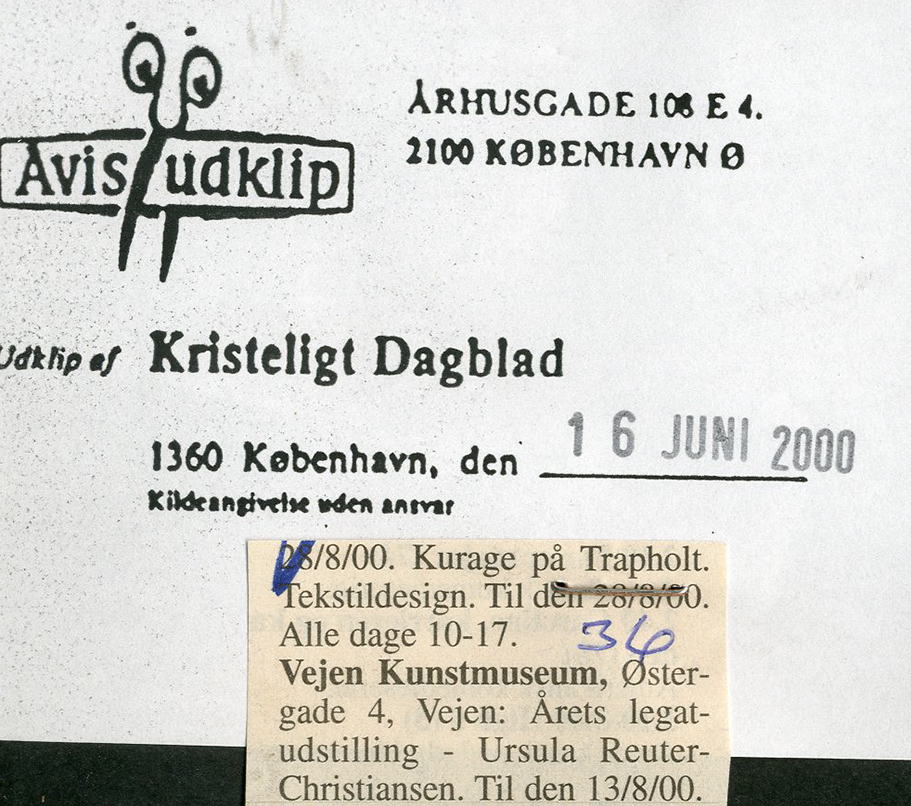 Avis/udklip
ÅRHUSGADE 108 E 4.
2100 KØBENHAVN Ø
Udklip af Kristeligt Dagblad
1360 København, den 16 JUNI 2000
Kildeangivelse uden ansvar
28/8/00. Kurage på Trapholt.
Tekstildesign. Til den 28/8/00.
Alle dage 10-17.
36
Vejen Kunstmuseum, Øster-
gade 4, Vejen: Årets legat-
udstilling - Ursula Reuter-
Christiansen. Til den 13/8/00.